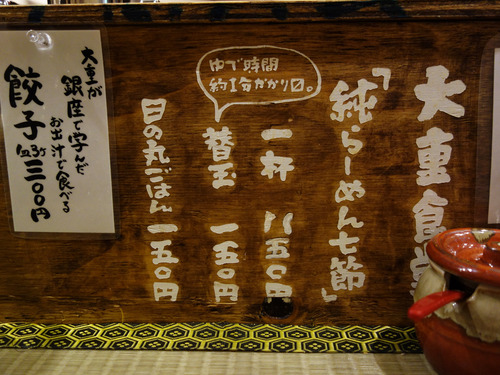 大重食堂
「純らーめん七節」
一杯 八五〇円
ゆで時間
約1分かかり〼。
替玉 一五〇円
日の丸ごはん 一五〇円
大重が
銀座で学んだ
お出汁で食べる
餃子 三〇〇円